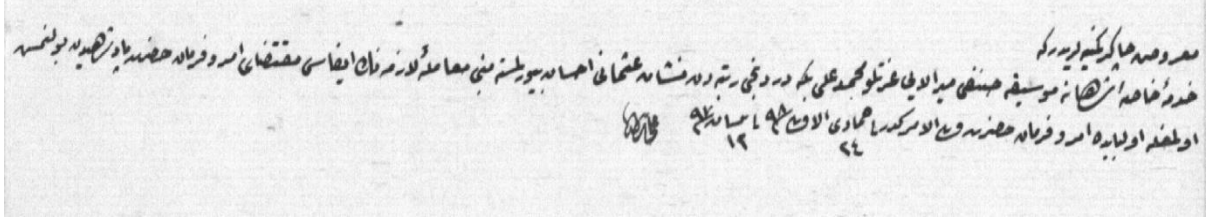 معروض چاکر کمینه لریدر که
خدمهٔ خاصهٔ شاهانه موسیقه صنفی میرالایی عزتلو محمد علی بکه دردنجی رتبه دن نشان عثمانی احسان بیورلمسنه مبنی معاملهٔ لازمه نك ایفاسی مقتضای امر و فرمان حضرت پادشاهیدن بولنمش
اولمغله اولبابده امر و فرمان حضرت ولی الامرکدر فی ٢٤ جمادی الاولی ٩٨ فی ١٢ نیسان ٩٧